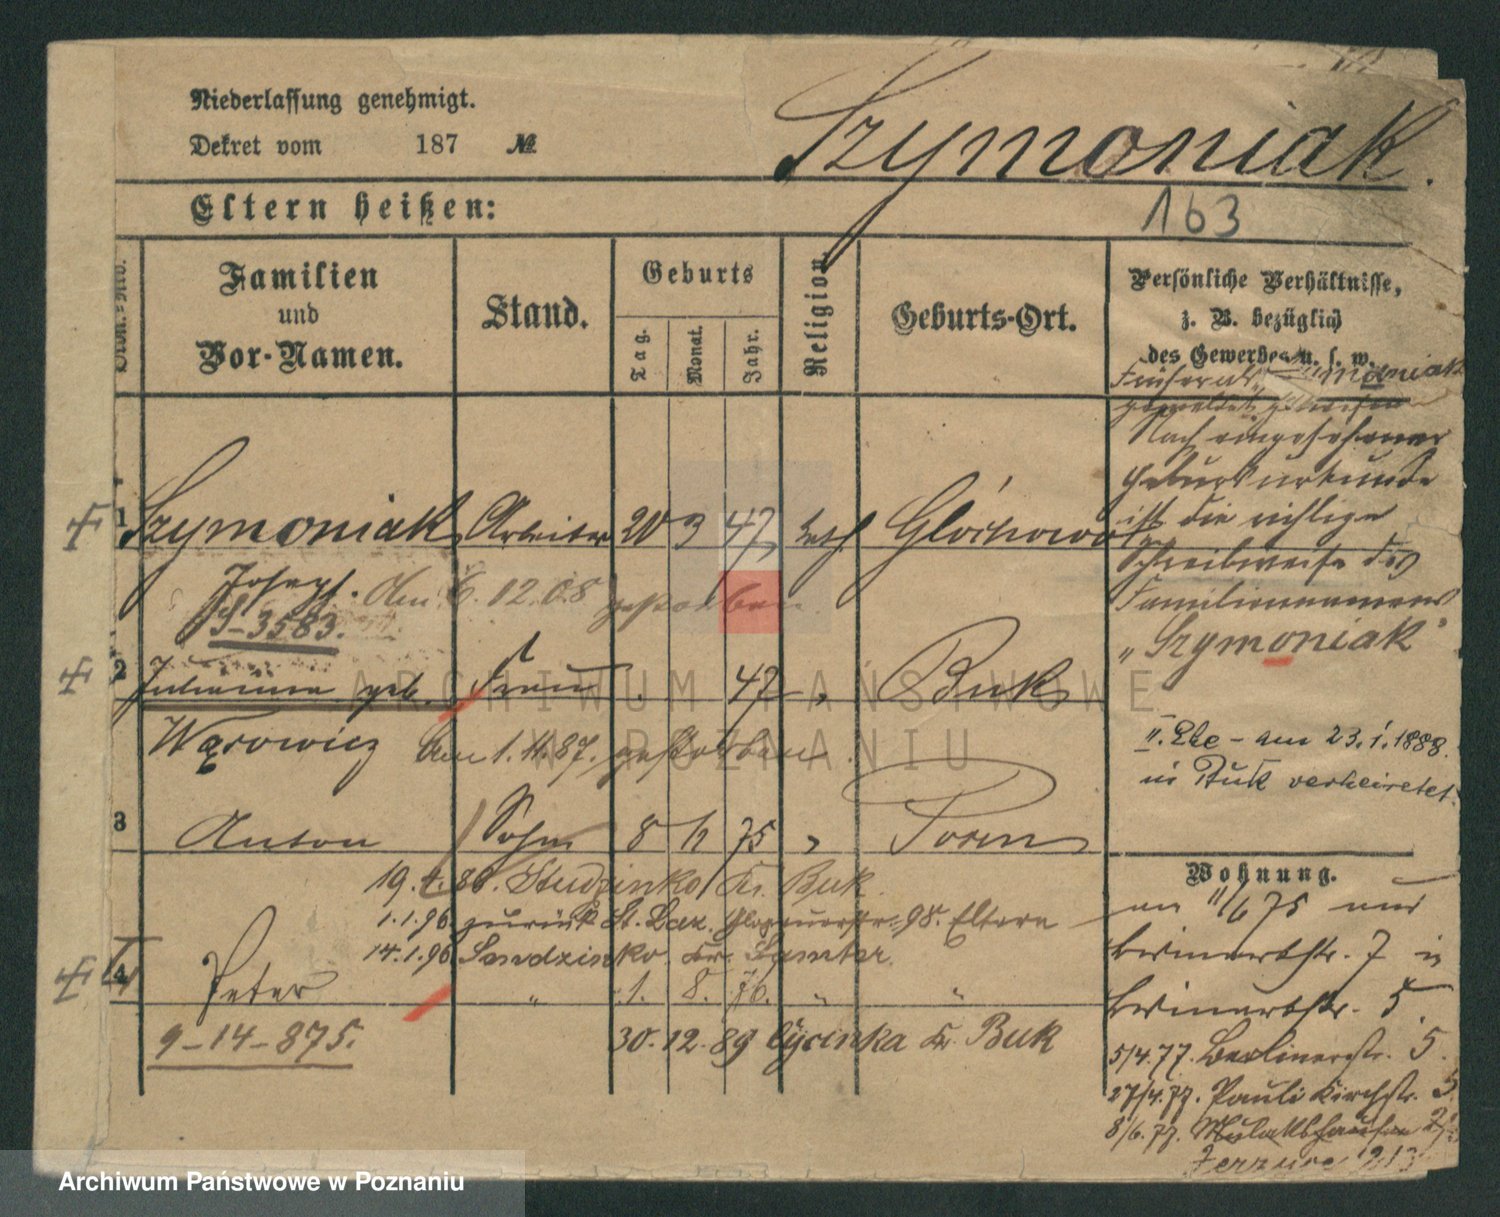 Niederlassung genehmigt.
Dekret vom 187 №
Szymoniak.
Eltern heißen:
163
Familien und Vor-Namen.
Stand.
Geburts
Tag. Monat. Jahr.
Religion
Geburts-Ort.
Persönliche Verhältnisse, z. B. bezüglich des Gewerbes u. s. w.
1 Szymoniak Arbeiter 20 3 47 kath
Joseph. den 6. 12. 08 gestorben
S-3583.
2 Julianna geb. Frau 47 " Buk
Wąrowicz am 1. 11. 87. gestorben
3 Anton Sohn 8 12 75 " Posen
19. 4. 86. Studzinko Kr. Buk
1.1.96 zurück St. Laz. Glogauerstr. 98. Eltern
14.1.96 Sendzinko Kr. Samter
4 Peter " 1. 8. 76. " "
9-14-875.
30. 12. 89 Kr. Buk
Früher als
Nach eingesehener
Geburtsurkunde
ist die richtige
Schreibweise des
Familiennamens
„Szymoniak"
II. Ehe - am 23.1.1888.
in Buk verheiratet.
Wohnung.
7 in
5.
5/4.77. Berlinerstr. 5.
27/4.77. Pauli Kirchstr. 5
8/6.77.
213
ARCHIWUM PAŃSTWOWE
W POZNANIU
Archiwum Państwowe w Poznaniu